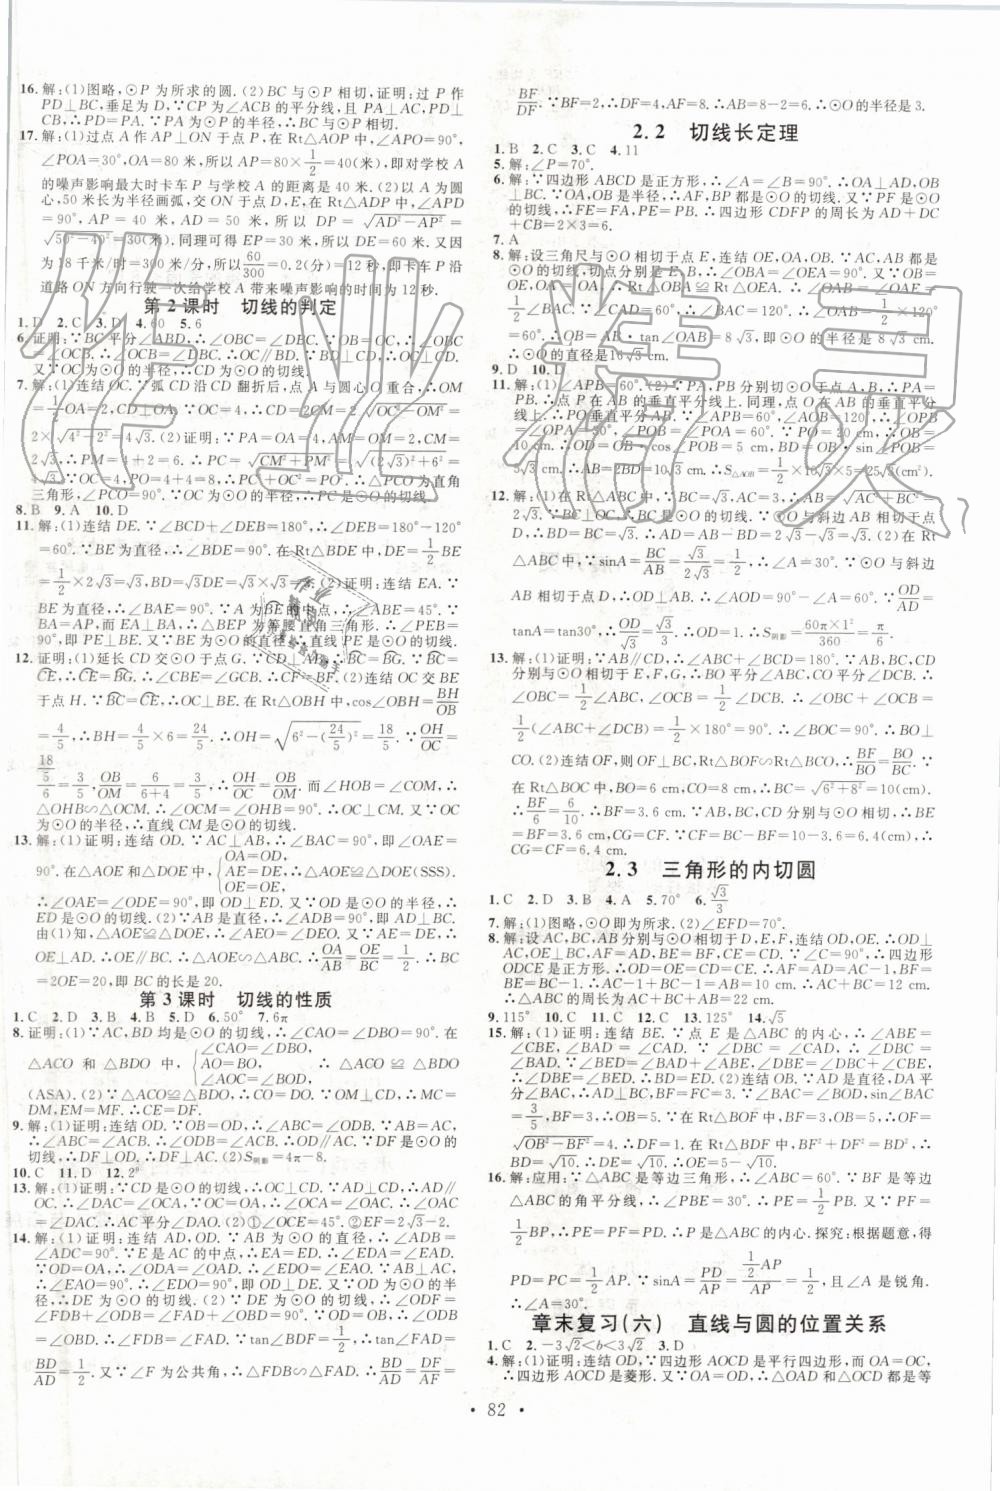 16. 解:(1)图略,⊙P 为所求的圆.(2)BC 与⊙P 相切,证明:过 P 作
PD⊥BC,垂足为 D,∵CP 为∠ACB 的平分线,且 PA⊥AC,PD⊥
CB,∴PD=PA.∵PA 为⊙P 的半径,∴BC 与⊙P 相切.
17. 解:(1)过点 A 作 AP⊥ON 于点 P,在 Rt△AOP 中,∠APO=90°,
∠POA=30°,OA=80 米,所以 AP=80×1/2=40(米),即对学校 A
的噪声影响最大时卡车 P 与学校 A 的距离是 40 米.(2)以 A 为圆
心,50 米长为半径画弧,交 ON 于点 D,E,在 Rt△ADP 中,∠APD
=90°,AP=40 米,AD=50 米,所以 DP=√(AD²-AP²)=
√(50²-40²)=30(米).同理可得 EP=30 米,所以 DE=60 米.又因
为 18 千米/时=300 米/分,所以 60/300=0.2(分)=12 秒,即卡车 P 沿
道路 ON 方向行驶一次给学校 A 带来噪声影响的时间为 12 秒.
第 2 课时 切线的判定
1. D 2. C 3. D 4. 60 5. 6
6. 证明:∵BC平分∠ABD,∴∠OBC=∠DBC.∵OB=OC,
∴∠OBC=∠OCB.∴∠DBC=∠OCB.∴OC∥BD.∵BD⊥CD,
∴OC⊥CD.∴CD 为⊙O 的切线.
7. 解:(1)连结 OC.∵弧沿 CD 翻折后,点 A 与圆心 O 重合,∴OM
=1/2OA=2,CD⊥OA.∵OC=4,∴CD=2CM=2√(OC²-OM²)=
2×√(4²-2²)=4√3.(2)证明:∵PA=OA=4,AM=OM=2,CM=
2√3,∴PM=6.∴PC=√(CM²+PM²)=√((2√3)²+6²)=
4√3.∵OC=4,PO=4+4=8,∴PC²+OC²=PO².∴△PCO 为直角
三角形,∴∠PCO=90°.∴OC⊥PC.又∵OC 为⊙O 的半径,∴PC 是⊙O 的切线.
8. B 9. A 10. D
11. 解:(1)连结 DE.∵∠BCD+∠DEB=180°,∴∠DEB=180°-120°
=60°.∵BE 为直径,∴∠BDE=90°.在 Rt△BDE 中,DE=1/2BE
=1/2×2√3=√3,BD=√3DE=√3×√3=3.(2)证明:连结 EA.∵
BE为直径,∴∠BAE=90°.∵A 为BE的中点,∴∠ABE=45°.∵
BA=AP,而 EA⊥BA,∴△BEP 为等腰直角三角形.∴∠PEB=
90°,即 PE⊥BE.又∵BE 为⊙O 的直径,∴直线 PE 是⊙O 的切线.
12. 证明:(1)延长 CD 交⊙O 于点 G.∵CD⊥AB,∴BC=BG.∵BC=
CE,∴CE=BG.∴∠CBE=∠GCB.∴CF=BF.(2)连结 OC 交 BE
于点 H.∵BC=CE,∴OC⊥BE.在 Rt△OBH 中,cos∠OBH=BH/OB
=4/5,∴BH=4/5×6=24/5.∴OH=√(6²-(24/5)²)=18/5.∵OH/OC=
(18/5)/6=3/5,OB/OM=6/(6+4)=3/5,∴OH/OC=OB/OM.而∠HOB=∠COM,∴
△OHB∽△OCM.∴∠OCM=∠OHB=90°.∴OC⊥CM.又∵OC
为⊙O 的半径,∴直线 CM 是⊙O 的切线.
13. 解:(1)证明:连结 OD.∵AC⊥AB,∴∠BAC=90°,即∠OAE=
90°.在△AOE 和△DOE 中,{OA=OD, AE=DE, OE=OE ∴△AOE≌△DOE(SSS).
∴∠OAE=∠ODE=90°,即 OD⊥ED.又∵OD 是⊙O 的半径,
∴ED 是⊙O 的切线.(2)∵AB 是直径,∴∠ADB=90°,即 AD⊥BC.
由(1)知,△AOE≌△DOE,∴∠AEO=∠DEO.又∵AE=DE,∴
OE⊥AD.∴OE∥BC.∴△AOE∽△ABC.∴OA/AB=OE/BC=1/2.∴BC
=2OE=20,即 BC 的长是 20.
第 3 课时 切线的性质
1. C 2. D 3. B 4. B 5. D 6. 50° 7. 6π
8. 证明:(1)∵AC,BD 均是⊙O 的切线,∴∠CAO=∠DBO=90°.在
△ACO 和△BDO 中,{∠CAO=∠DBO, AO=BO, ∠AOC=∠BOD ∴△ACO≌△BDO
(ASA).(2)∵△ACO≌△BDO,∴CO=DO.∵OM⊥CD,∴MC=
DM,EM=MF.∴CE=DF.
9. 解:(1)证明:连结 OD.∵OB=OD,∴∠ABC=∠ODB.∵AB=AC,
∴∠ABC=∠ACB.∴∠ODB=∠ACB.∴OD∥AC.∵DF 是⊙O
的切线,∴DF⊥OD.∴DF⊥AC.(2)S阴影=4π-8.
10. C 11. D 12. 2°
13. 解:(1)证明:∵CD 是⊙O 的切线,∴OC⊥CD.∵AD⊥CD,∴AD∥
OC.∴∠DAC=∠OCA.∵OC=OA,∴∠OCA=∠OAC.∴∠OAC
=∠DAC.∴AC平分∠DAO.(2)①∠OCE=45°.②EF=2√3-2.
14. 解:(1)证明:连结 AD,OD.∵AB 为⊙O 的直径,∴∠ADB=
∠ADC=90°.∵E 是 AC 的中点,∴EA=ED.∴∠EDA=∠EAD.
∵OD=OA,∴∠ODA=∠OAD.∴∠EDO=∠EAO.∵AB⊥AC,
∴∠EAO=90°.∴∠EDO=90°.∴OD⊥DE.又∵OD 为⊙O 的半
径,∴DE 为⊙O 的切线.(2)∵DE 为⊙O 的切线,∴∠ODF=
∠FDB+∠ODB=90°.又∵∠FAD+∠OBD=90°,∠ODB=∠OBD
∴∠FDB=∠FAD.又∵tan∠OBD=2,∴tan∠BDF=1/2,∴
BD/AD=1/2.又∵∠F 为公共角,∴△FDB∽△FAD.∴BD/AD=DF/AF=
BF/DF.∵BF=2,∴DF=4,AF=8.∴AB=8-2=6.∴⊙O 的半径是 3.
2.2 切线长定理
1. B 2. C 3. C 4. 11
5. 解:∠P=70°.
6. 解:∵四边形 ABCD 是正方形,∴∠A=∠B=90°.∴OA⊥AD,OB
⊥BC.∵OA,OB 是⊙O 的半径,∴AD,BC 是⊙O 的切线.又∵PF 是⊙O
的切线,∴FE=FA,PE=PB.∴四边形 CDFP 的周长为 AD+DC
+CB=2×3=6.
7. A
8. 解:设三角尺与⊙O 相切于点 E,连结 OE,OA,OB.∵AC,AB 都是
⊙O的切线,切点分别是 E,B,∴∠OBA=∠OEA=90°.∵OE=OB,
OA=OA,∴Rt△OBA≌Rt△OEA.∴∠OAB=∠OAE=
1/2∠BAE.∵∠BAC=60°,∴∠BAE=120°.∴∠OAB=1/2×120°
=60°.∴OB=AB·tan∠OAB=8√3 cm.∴⊙O 的半径是 8√3 cm.
∴⊙O 的直径是16√3 cm.
9. D 10. D
11. 解:(1)∠APB=60°.(2)∵PA,PB 分别切⊙O 于点 A,B,∴PA=
PB.∴点 P 在 AB 的垂直平分线上.同理,点 O 在AB的垂直平分线
上.∴OP 垂直平分 AB.∵∠APB=60°,∴∠AOB=120°.∴∠OPB=
∠OPA=30°.∵PO=20 cm,∴OB=
10 cm.∴OD=OB·cos∠POB=5 cm,BD=OB·sin∠POB=
5√3 cm.∴AB=2BD=10√3 cm.∴S△AOB=1/2×10√3×5=25√3(cm²).
12. 解:(1)在 Rt△ABC 中,∵BC=√3,AC=3,∴AB=√(AC²+BC²)=
2√3.∵BC⊥OC,∴BC 是⊙O 的切线.∵⊙O 与斜边 AB 相切于点
D,∴BD=BC=√3.∴AD=AB-BD=2√3-√3=√3.(2)在 Rt
△ABC 中,∵sinA=BC/AB=√3/(2√3)=1/2,∴∠A=30°.∵⊙O 与斜边
AB 相切于点 D,∴OD⊥AB.∴∠AOD=90°-∠A=60°.∵OD/AD=
tanA=tan30°,∴OD/√3=√3/3.∴OD=1.∴S阴影=(60π×1²)/360=π/6.
13. 解:(1)证明:∵AB∥CD,∴∠ABC+∠BCD=180°.∵AB,BC,CD
分别与⊙O 相切于 E,F,G,∴BO平分∠ABC,CO平分∠DCB.∴
∠OBC=1/2∠ABC,∠OCB=1/2∠DCB.∴∠OBC+∠OCB=
1/2(∠ABC+∠DCB)=1/2×180°=90°.∴∠BOC=90°.∴BO⊥
CO.(2)连结 OF,则 OF⊥BC,Rt△BOF∽Rt△BCO.∴BF/BO=BO/BC.∵
在 Rt△BOC 中,BO=6 cm,CO=8 cm,∴BC=√(6²+8²)=10(cm).
∴BF/6=6/10.∴BF=3.6 cm.∵AB,BC,CD 分别与⊙O 相切,∴BE
=BF=3.6 cm,CG=CF.∵CF=BC-BF=10-3.6=6.4(cm),∴
CG=CF=6.4 cm.
2.3 三角形的内切圆
1. C 2. D 3. B 4. A 5. 70° 6. √3/3
7. 解:(1)图略,⊙O 即为所求.(2)∠EFD=70°.
8. 解:设 AC,BC,AB 分别与⊙O 相切于 D,E,F,连结 OD,OE.∴OD⊥
AC,OE⊥BC,AD=AF,BE=BF,CE=CD.∵∠C=90°,∴四边形
ODCE 是正方形.∵OD=CD=CE=OE=1,∴AD=AC-1=AF,
BE=BC-1=BF.∴AC-1+BC-1=AB=10.∴AC+BC=
12.∴△ABC 的周长为 AC+BC+AB=22.
9. 115° 10. C 11. C 12. C 13. 125° 14. √5
15. 解:(1)证明:连结 BE.∵点 E 是△ABC 的内心,∴∠ABE=
∠CBE,∠BAD=∠CAD.∵∠DBC=∠CAD,∴∠DBC=
∠BAD.∵∠BED=∠ABE+∠BAD,∠DBE=∠DBC+∠CBE,
∴∠DBE=∠BED.∴BD=DE.(2)连结 BO.∵AD 是直径,DA平分
∠BAC,∴AD⊥BC,BF=FC=3.∵∠BOD=∠BAC,sin∠BAC=
3/5,BF=3,∴OB=5.∵在 Rt△BOF 中,BF=3,OB=5,∴OF=
√(OB²-BF²)=4.∴FD=1.在 Rt△BDF 中,BF²+DF²=BD²,∴BD
=√10.∴DE=√10.
16. 解:应用:∵△ABC 是等边三角形,∴∠ABC=60°.∵BF 是等边
△ABC 的角平分线,∴∠PBE=30°.∴PE=1/2BP.又∵PF=
1/2BP,∴PE=PF=PD.∴P 是△ABC 的内心.探究:根据题意,得
PD=PC=1/2AP.∵sinA=PD/AP=(1/2AP)/AP=1/2,且∠A 是锐角,
∴∠A=30°.
章末复习(六) 直线与圆的位置关系
1. C 2. -3√2<b<3√2 3. D
4. 解:(1)证明:连结 OD,∵四边形 AOCD 是平行四边形,而 OA=OC,
∴四边形 AOCD 是菱形.又∵OA=OD,∴△OAD 和△OCD 都是等
• 82 •